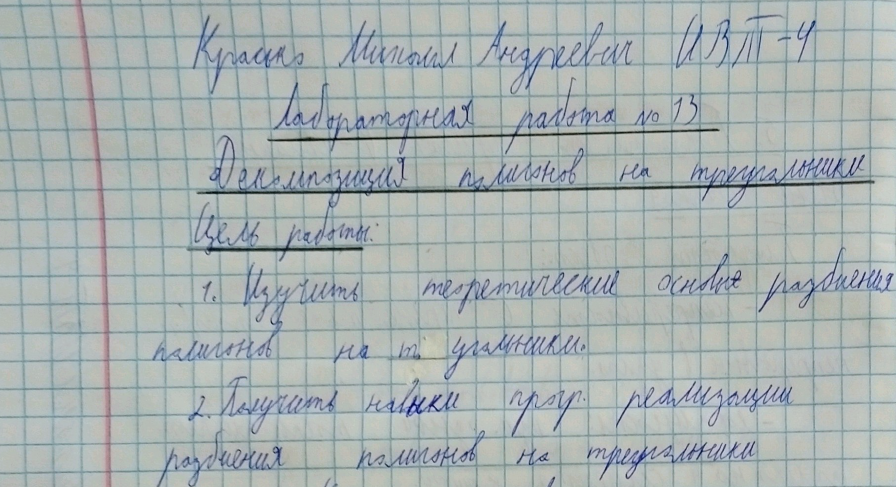 Михаил Андреевич ИВТ-4
Лабораторная работа №13
Декомпозиция полигонов на треугольники
Цель работы:
1. Изучить теоретические основы разбиения
полигонов на т угольники.
2. Получить навыки прогр. реализации
разбиения полигонов на треугольники